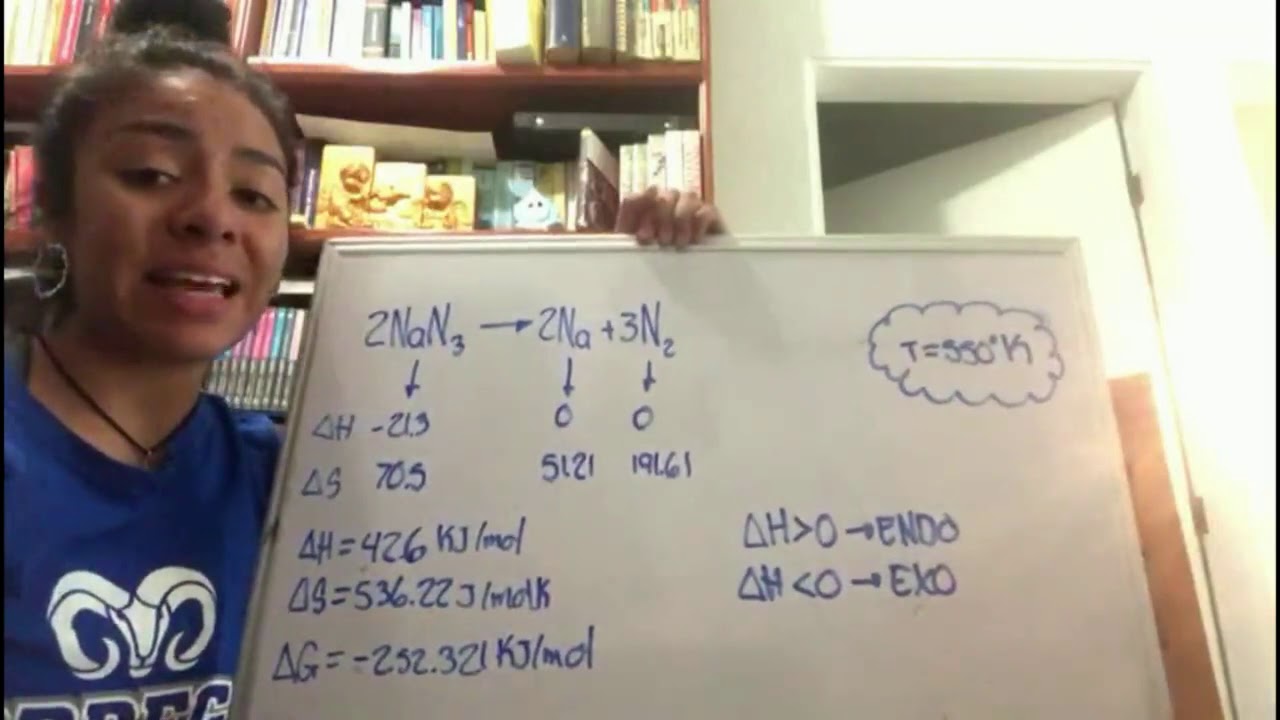 2NaN₃ → 2Na + 3N₂
T = 550°K
↓ ↓ ↓
ΔH -21.3 0 0
ΔS 70.5 51.21 191.61
ΔH = 42.6 KJ/mol
ΔS = 536.22 J/molK
ΔG = -252.321 KJ/mol
ΔH > 0 → ENDO
ΔH < 0 → EXO